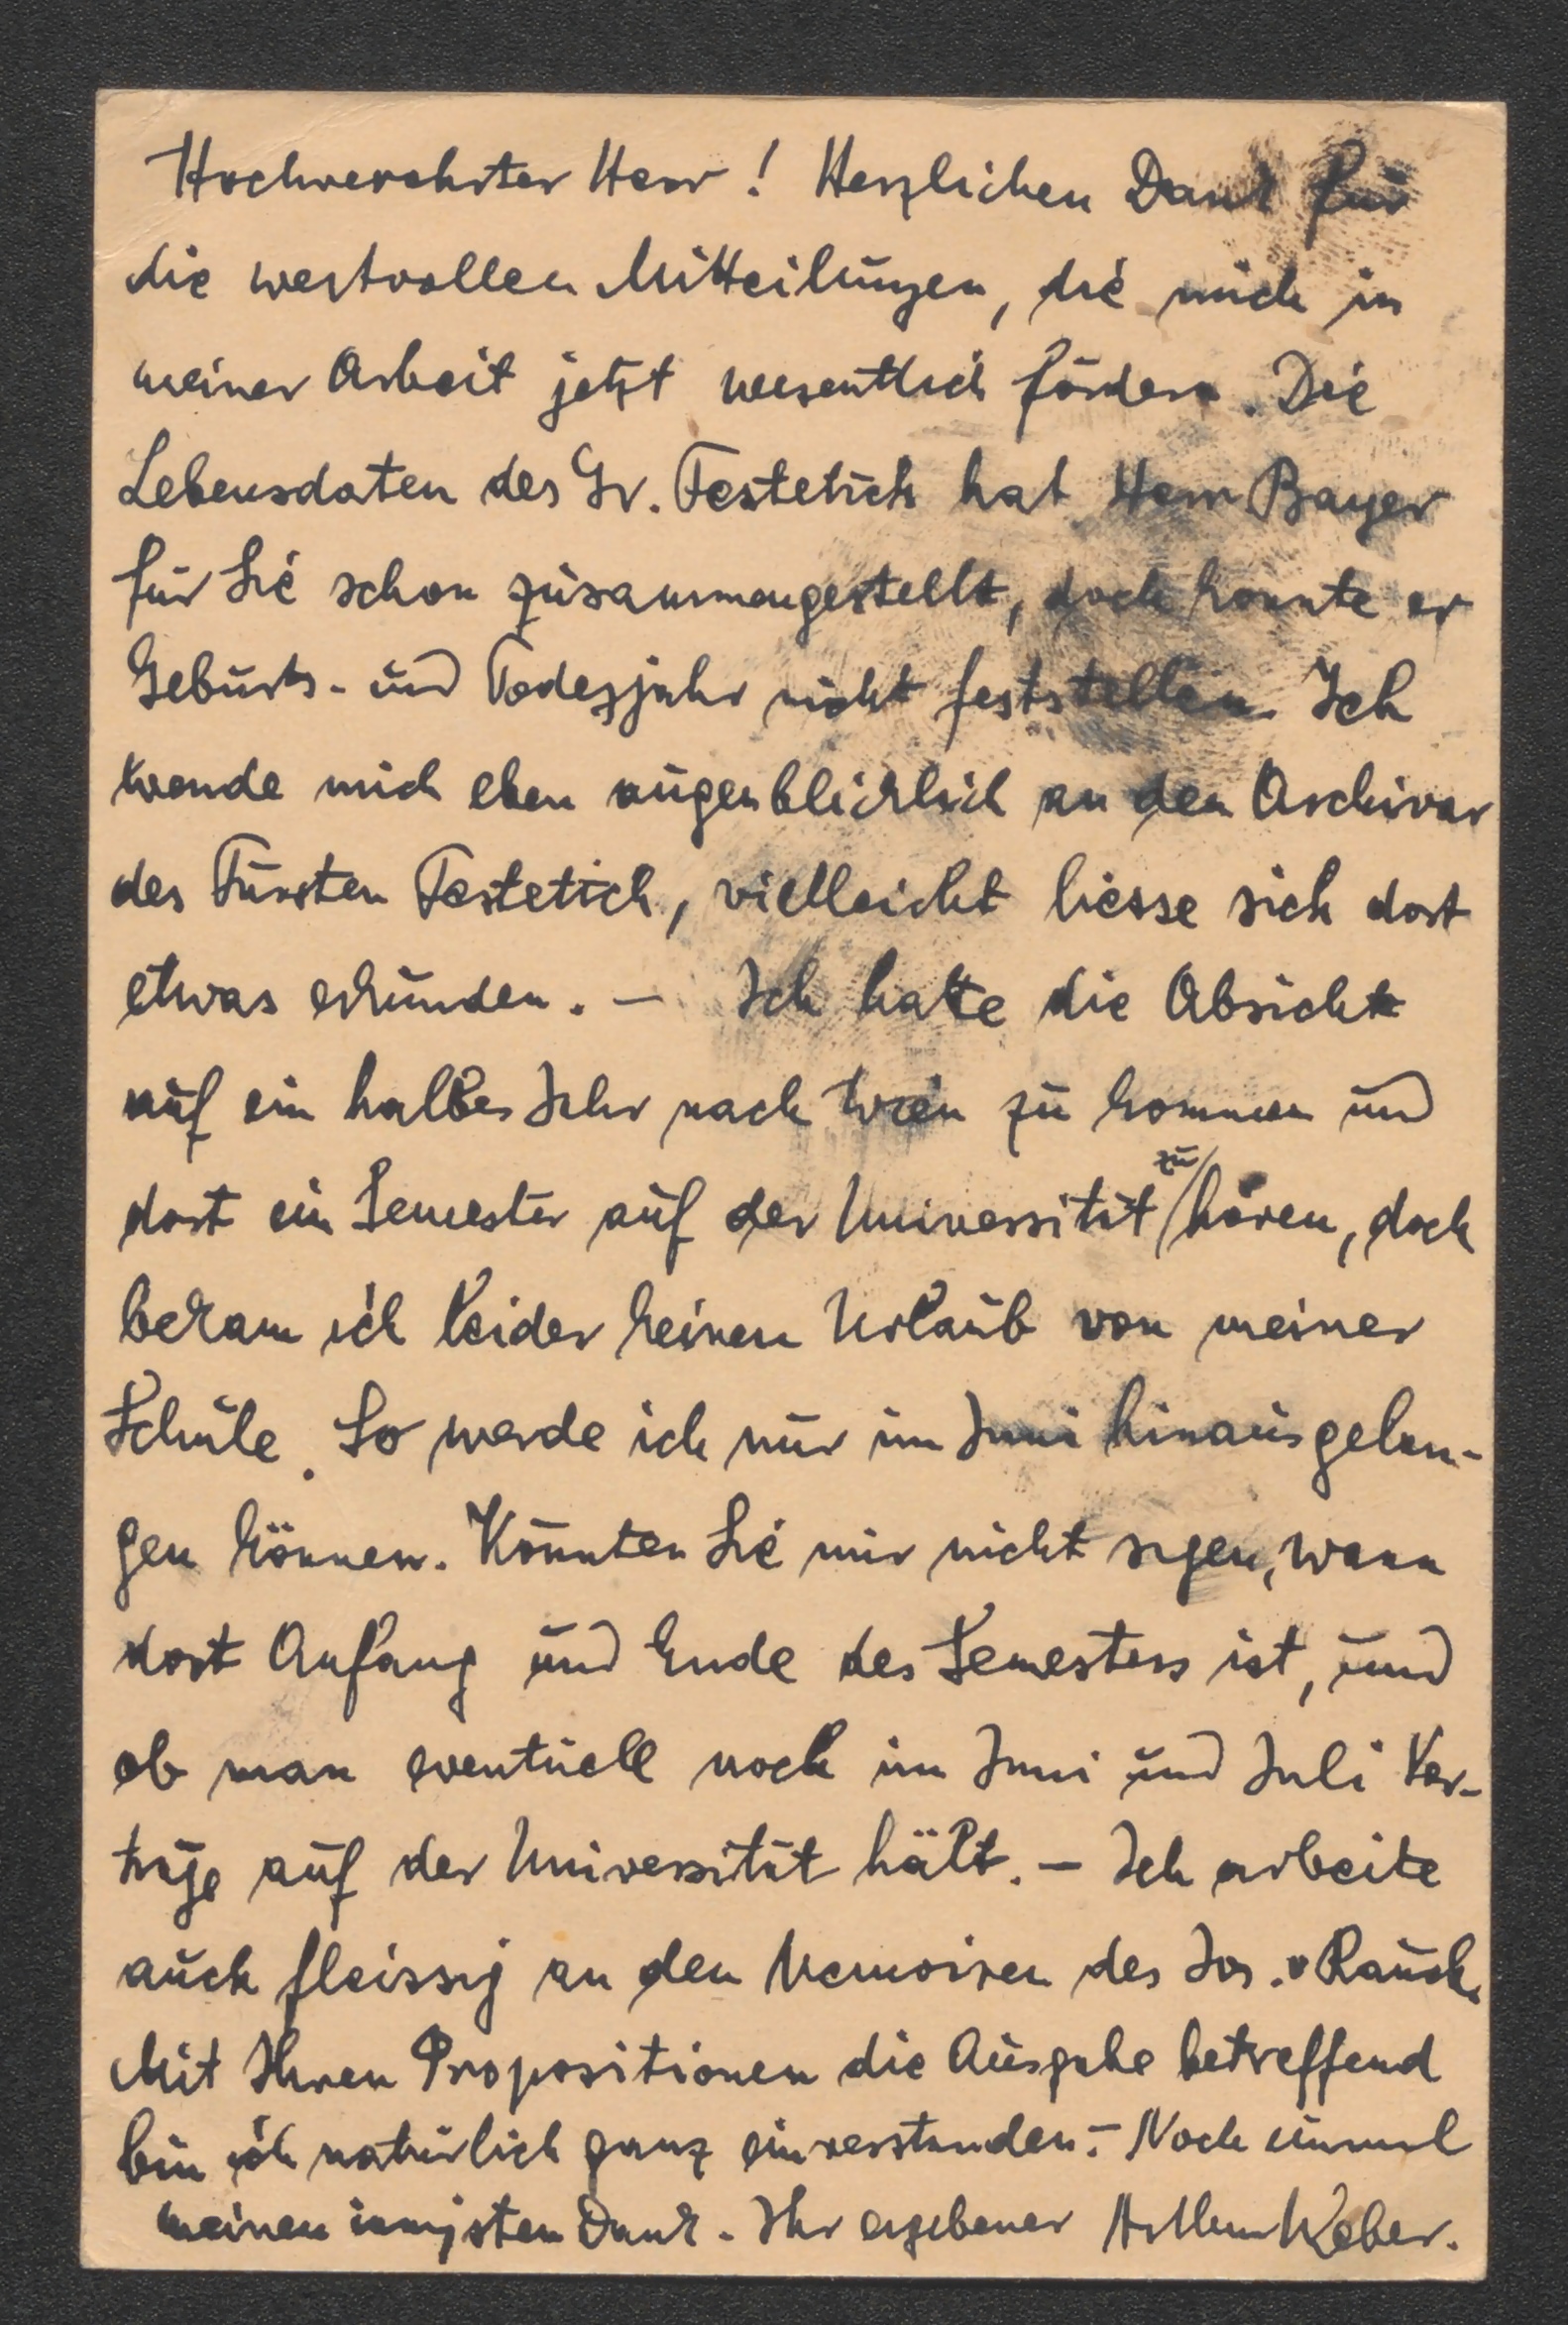 Hochverehrter Herr! Herzlichen Dank für
die wertvollen Mitteilungen, die mich in
meiner Arbeit jetzt wesentlich fördern. Die
Lebensdaten des Gr. Festetich hat Herr Bayer
für Sie schon zusammengestellt, doch konnte er
Geburts- und Todesjahr nicht feststellen. Ich
wende mich eben augenblicklich an den Archivar
des Fürsten Festetich, vielleicht liesse sich dort
etwas erkunden. – Ich hatte die Absicht
auf ein halbes Jahr nach Wien zu kommen und
dort ein Semester auf der Universität zu hören, doch
bekam ich leider keinen Urlaub von meiner
Schule. So werde ich nur im Juni hinausgelan-
gen können. Könnten Sie mir nicht sagen, wann
dort Anfang und Ende des Semesters ist, und
ob man eventuell noch im Juni und Juli Vor-
träge auf der Universität hält. – Ich arbeite
auch fleissig an den Memoiren des Jos. v Rauch.
Mit Ihren Propositionen die Ausgabe betreffend
bin ich natürlich ganz einverstanden. – Noch einmal
meinen innigsten Dank. Ihr ergebener Weber.